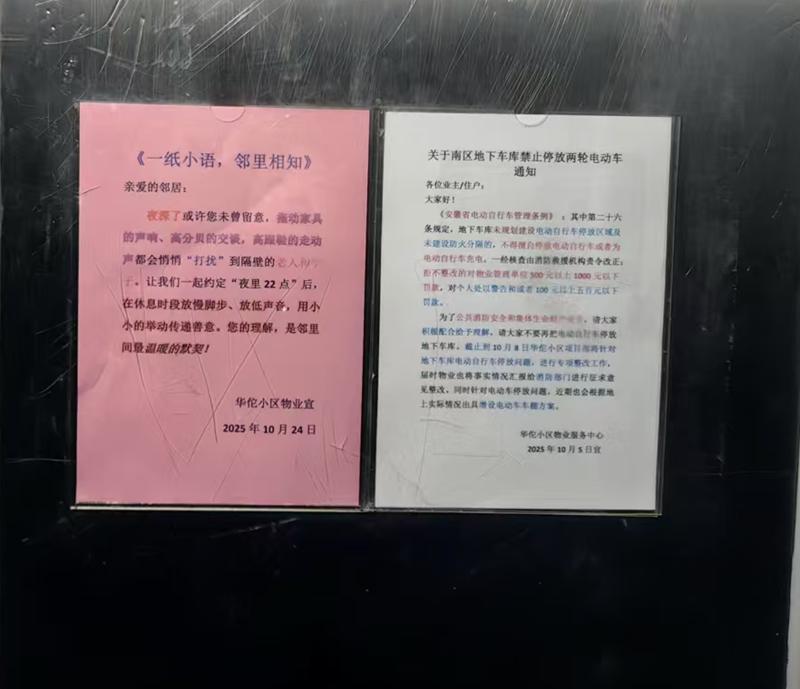 《一纸小语，邻里相知》
亲爱的邻居：
夜深了或许您未曾留意，拖动家具
的声响、高分贝的交谈，高跟鞋的走动
声都会悄悄“打扰”到隔壁的老人和
子。让我们一起约定“夜里 22 点”后，
在休息时段放慢脚步、放低声音，用小
小的举动传递善意。您的理解，是邻里
间最温暖的默契！
华佗小区物业宣
2025 年 10 月 24 日
关于南区地下车库禁止停放两轮电动车
通知
各位业主/住户：
大家好！
《安徽省电动自行车管理条例》：其中第二十六
条规定，地下车库未规划建设电动自行车停放区域及
未建设防火分隔的，不得擅自停放电动自行车或者为
电动自行车充电，一经核查由消防救援机构责令改正；
拒不整改的对物业管理单位 500 元以上 1000 元以下
罚款，对个人处以警告和或者 100 元以上五百元以下
罚款。
为了公共消防安全和集体生命财产安全，请大家
积极配合给予理解，请大家不要再把电动自行车停放
地下车库。截止到 10 月 8 日华佗小区项目部将针对
地下车库电动自行车停放问题，进行专项整改工作，
届时物业也将事实情况汇报给消防部门进行征求意
见整改、同时针对电动车停放问题，近期也会根据地
上实际情况出具增设电动车车棚方案。
华佗小区物业服务中心
2025 年 10 月 5 日宣